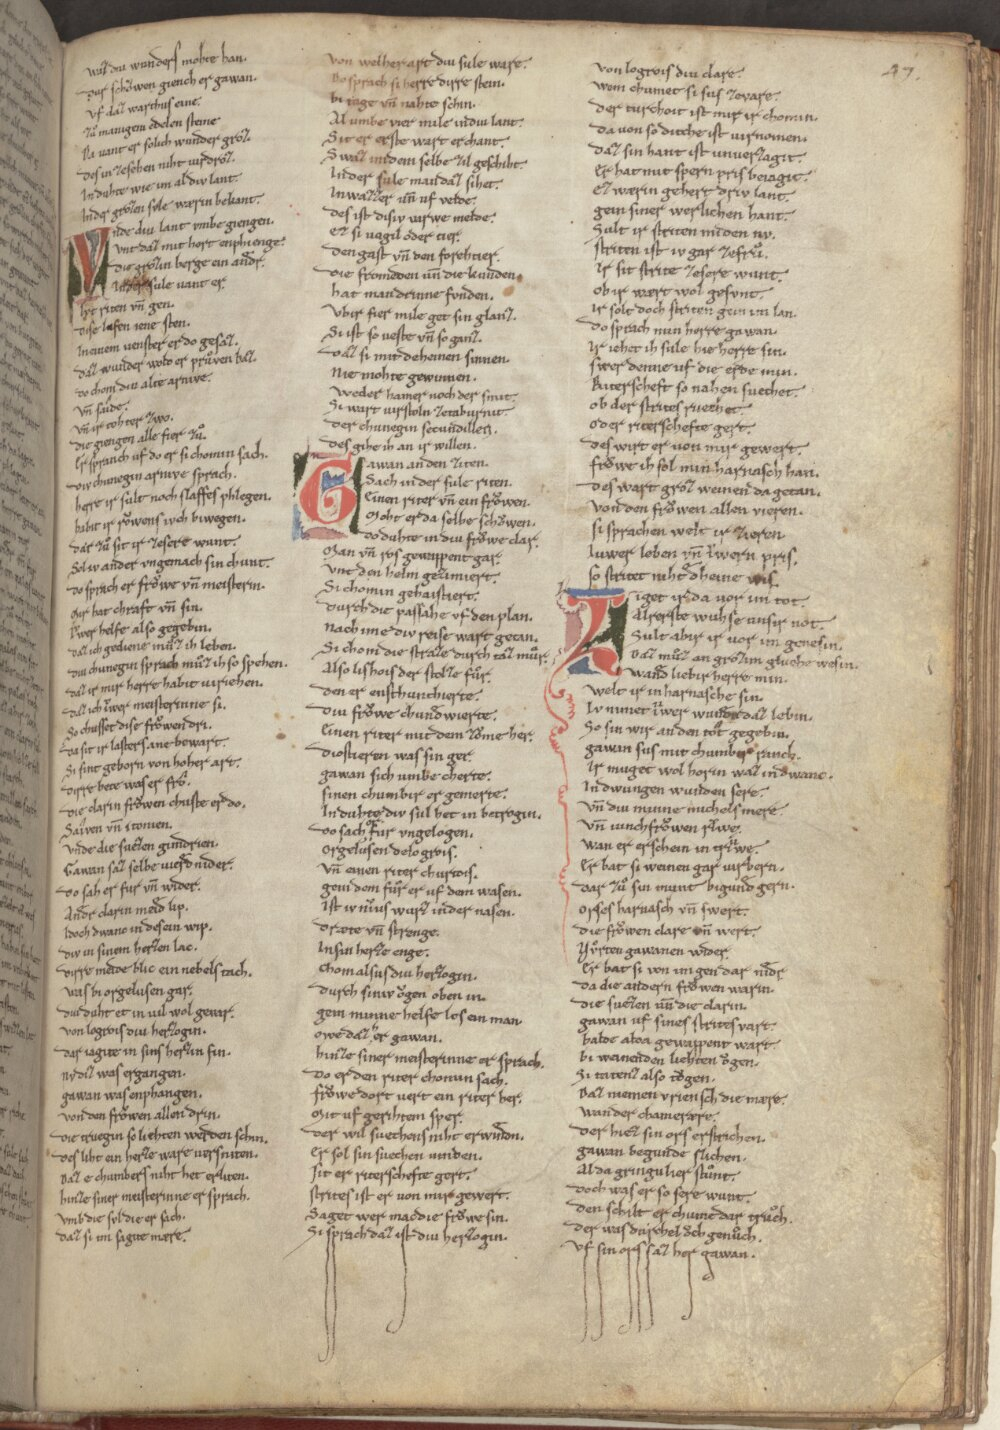 47.
waz diu wunders mohte han.
Dur schöwen giench er gawan.
Vf daz warthus eine.
zů manigem edelen steine
Da vant er solich wunder groz.
Des in ze sehen niht verdroz.
In duhte wie im al div lant.
In der grozen sule wærin bekant.
Vnde diu lant vmbe giengen.
Vnt daz mit hort enphienge.
die grozin berge ein andr.
In der sule vant er
lvt riten vñ gen.
dise lofen iene sten.
In einem venster er do gesaz.
daz wunder wold er průven baz.
do chom diu alte arnive.
vñ saide.
vñ ir tohter zwo.
die giengen alle fier zů.
Er spranch vf do er si chomin sach.
Diu chunegin arnive sprach.
herre ir sult noch slaffes phlegen.
habit ir rowens ivch biwegen.
dar zů sit ir ze sere wunt.
Sol iv ander vngemach sin chunt.
do sprach er fröwe vñ meisterin.
Mir hat chraft vñ sin.
Iwer helfe also gegebin.
daz ich gediene můz ih leben.
diu chunegin sprach můz ih so spehen.
daz ir mir herre habit virjehen.
daz ich iwer meisterinne si.
So chusset dise fröwen dri.
da sit ir lasters ane bewart.
Si sint geborn von hoher art.
dirre bete was er fro.
die clarin fröwen chuste er do.
Saiven vñ itonien.
Vnde die suezen gundrien.
Gawan saz selbe vierd nider.
do sah er fur vñ wider.
Andr clarin meid lip.
Idoch dwanc in des ein wip.
div in sinem herzen lac.
dirre meide blic ein nebels tach.
was bi orgelusen gar.
diu duht et in vil wol gevar.
von logrois diu herzogin.
dar iagite in sins herzin sin.
nv diz was ergangen.
gawan was enphangen.
von den fröwen allen drin.
die truegin so liehten werden schin.
des liht ein herze ware versniten.
daz e chumbers niht het erliten.
hinze siner meisterinne er sprach.
vmb die sul die er sach.
daz si im sagite mære.
von welher art diu sule ware.
Do sprach si herre dirre stein.
bi tage vñ nahte schin.
Al umbe vier mile in diu lant.
Sit er erste wart erchant.
Swaz in dem selbe zil geschiht.
In der sule man daz sihet.
In wazzer vñ uf velde.
des ist disiv warwe melde.
Ez si vogil oder tier.
den gast vñ den forehtier.
die fromeden vñ die kunden.
hat man drinne funden.
vbir fier mile get sin glanz.
Si ist so veste vñ so ganz.
daz si mit deheinen sinnen.
Nie mohte gewinnen.
weder hamer noch der smit.
Si wart virstoln ze tabrunit.
der chunegin secundillen.
des gihe ih an ir willen.
Gawan an den ziten.
Sach in der sule riten.
Einen riter vñ ein fröwen.
Moht er da selbe schöwen.
do duhte in diu fröwe clar.
Man vñ ros gewappent gar.
vnt den helm gezimiert.
Si chomin gehaistiert.
durch die passahe vf den plan.
nach ime div reise wart getan.
Si chom die straze durch taz můr.
Also lishois der stolze fůr.
den er ensthunchierte.
diu fröwe chundwierte.
Einen riter mit dem zöme her.
diostieren was sin ger.
gawan sich umbe cherte.
sinen chumbir er gemerte.
In duhte div sul het in betrogin.
do sach er fur vngelogen.
orgelusen de logrois.
vñ einen riter churtois.
gein dem fůr er uf dem wasen.
Ist iv niuswurz in der nasen.
dræte vñ strenge.
In sin herze enge.
chom alsus diu herzogin.
durch siniv ögen oben in.
gein minne helfe los ein man
owe daz her gawan.
hinze siner meisterinne er sprach.
do er den riter chomun sach.
fröwe dort vert ein riter her.
Mit uf gerihtem sper.
der wil suechens niht erwindn.
Er sol sin suechen vinden.
sit er riterschefte gert.
strites ist er von mir gewert.
Saget wer mac die fröwe sin.
Si sprach daz ist diu herzogin.
von logrois diu clare.
wem chumet si sus ze vare.
der turchoit ist mit ir chomin.
da von so diche ist virnomen.
daz sin hant ist unverzagit.
Er hat mit spern pris beiagit.
Ez wærin gehert driv lant.
gein siner werlichen hant.
Sult ir striten miden nv.
striten ist iv gar ze frů.
Ir sit strite ze sere wunt.
ob ir wært wol gesunt.
ir solt doch striten gein im lan.
do sprach min herre gawan.
Ir iehet ih sule hie herre sin.
swer denne uf die erbe min.
Riterscheft so nahen suechet.
ob der strites ruechet.
oder riterschefte gert.
des wirt er von mir gewert.
fröwe ih sol min harnasch han.
des wart groz weinen da getan.
von den fröwen allen vieren.
si sprachen welt ir zieren
Iuwer leben vñ iwern pris.
so stritet niht dheine wis.
Liget ir da vor im tot.
Alrerste wuhse unsir not.
Sult abir ir vor im genesin.
daz můz an grozim gluche wesin.
wand liebir herre min.
welt ir in harnasche sin.
Iv nimet iwer wunde daz lebin.
So sin wir an den tot gegebin.
gawan sus mit chumber ranch.
Ir muget wol horin waz in dwanc.
In dwungen wunden sere.
vñ diu minne michels mere.
vñ iunchfröwen riwe.
wan er erschein in triwe.
Er bat si weinen gar virbern.
dar zů sin munt bigund gern.
orses harnasch vñ swert.
die fröwen clare vñ wert.
Fůrten gawanen wider.
Er bat si von im gen dar nidr
da die andern fröwen warin.
die suezen vñ die clarin.
gawan uf sines strites vart.
balde aloa gewappent wart
bi weinenden liehten ögen.
Si tatenz also tögen.
Daz niemen vriensch die mære.
wan der chamerære.
der hiez sin ors erstrichen.
gawan begunde slichen.
Al da gringulier stůnt.
doch was er so sere wunt.
den schilt er chume dar trůch.
der was durchel och genůch.
Vf sin ors saz her gawan.